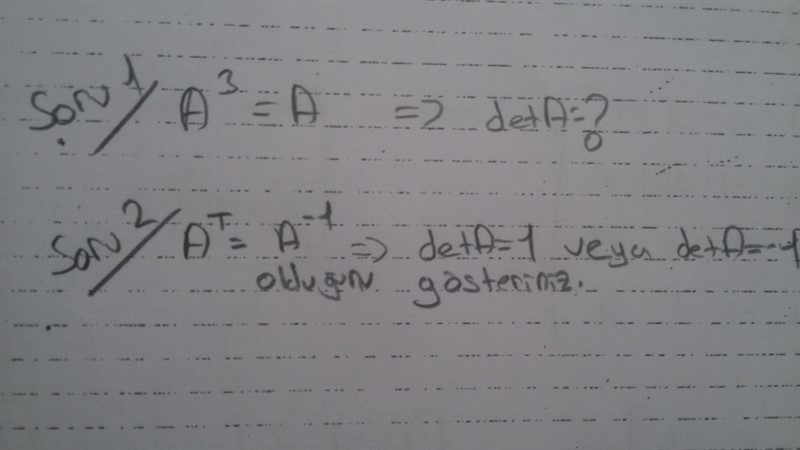 Soru 1/ A³ = A => det A = ?
Soru 2/ Aᵀ = A⁻¹ => det A = 1 veya det A = -1
olduğunu gösteriniz.